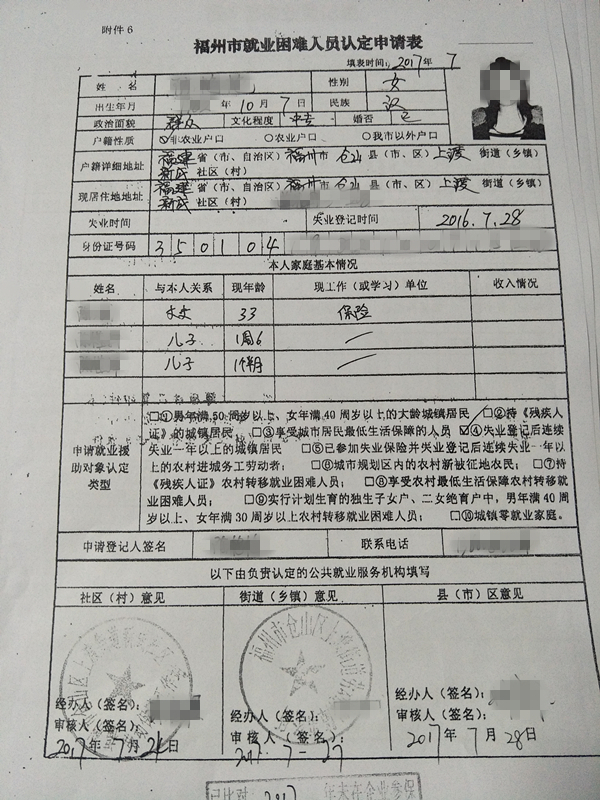 附件 6
福州市就业困难人员认定申请表
填表时间：2017年 7
姓 名 性别 女
出生年月 年 10 月 7 日 民族 汉
政治面貌 群众 文化程度 中专 婚否 已
户籍性质 非农业户口 ○农业户口 ○我市以外户口
户籍详细地址 福建 省（市、自治区）福州市 仓山 县（市、区）上渡 街道（乡镇）
新民 社区（村）
现居住地地址 福建 省（市、自治区）福州市 仓山 县（市、区）上渡 街道（乡镇）
新民 社区（村）
失业时间 失业登记时间 2016.7.28
身份证号码 350104
本人家庭基本情况
姓名 与本人关系 现年龄 现工作（或学习）单位 收入情况
丈夫 33 保险
儿子 1周6
儿子 1个月
申请就业援助对象认定类型
□①男年满 50 周岁以上、女年满 40 周岁以上的大龄城镇居民 □②持《残疾人
证》的城镇居民； □③享受城市居民最低生活保障的人员 ☑④失业登记后连续
失业一年以上的城镇居民 □⑤已参加失业保险并失业登记后连续失业一年以
上的农村进城务工劳动者； □⑥城市规划区内的农村新被征地农民； □⑦持
《残疾人证》农村转移就业人员； □⑧享受农村最低生活保障农村转移就
业困难人员； □⑨实行计划生育的独生子女户、二女绝育户中，男年满 40 周
岁以上、女年满 30 周岁以上农村转移就业困难人员； □⑩城镇零就业家庭。
申请登记人签名 联系电话
以下由负责认定的公共就业服务机构填写
社区（村）意见 街道（乡镇）意见 县（市）区意见
福州市仓山区上渡街道
经办人（签名）： 经办人（签名）： 经办人（签名）：
审核人（签名）： 审核人（签名）： 审核人（签名）：
2017年 7 月 24 日 2017-7-27 2017 年 7 月 28 日
已比对 2017 年未在企业参保